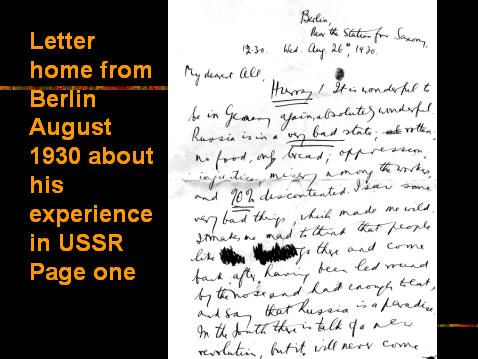 Letter
home from
Berlin
August
1930 about
his
experience
in USSR
Page one
Berlin,
Near the Station for Saxony,
12.30. Wed. Aug. 26th, 1930.
My dearest All,
Hurray! It is wonderful to
be in Germany again, absolutely wonderful
Russia is in a very bad state; rotten,
no food, only bread; oppression,
injustice, misery among the workers,
and 90% discontented. I saw some
very bad things, which made me wild.
It makes me mad to think that people
like go there and come
back, after having been led round
by the nose and had enough to eat,
and say that Russia is a paradise.
In the South there is talk of a new
revolution, but it will never come